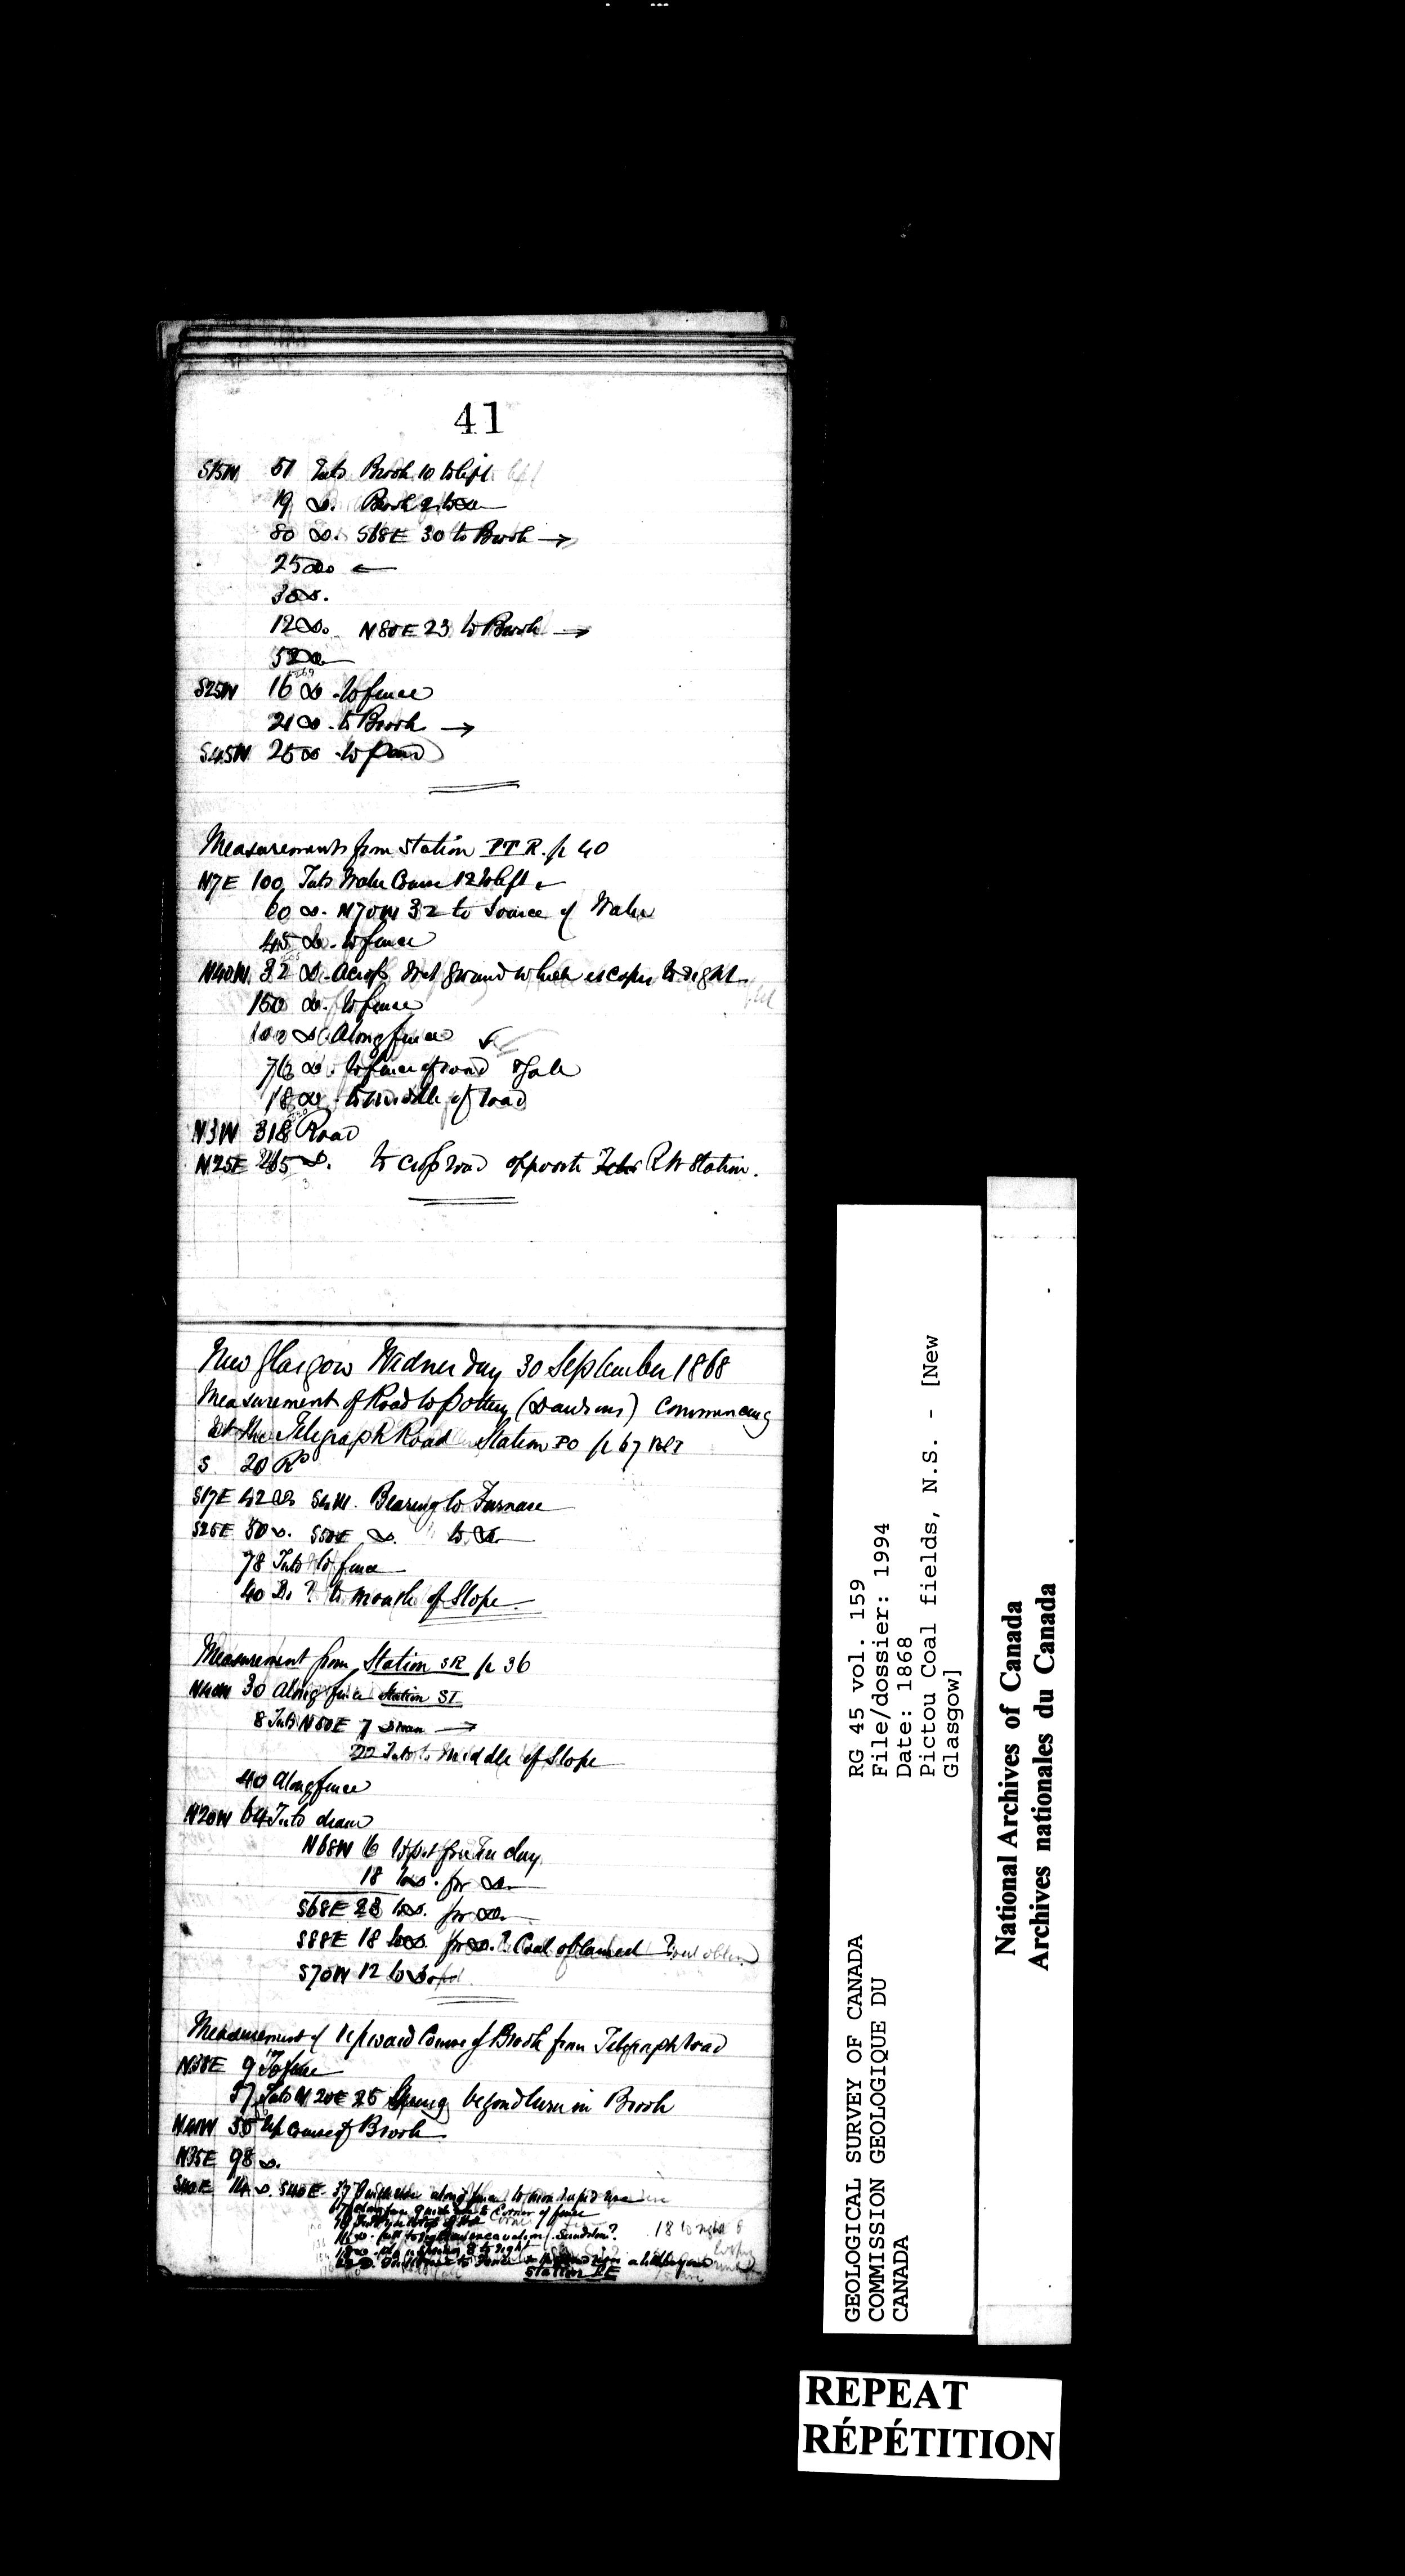 41
S15W 51 Into Brook 10 to left
19 Do. Brook 2 to Do
80 Do. S68E 30 to Brook →
25 Do ←
30 Do.
12 Do. N80E 23 to Brook →
52 Do
S25W 16 Do. to fence
21 Do. to Brook →
S45W 25 Do to pond
Measurements from Station PTR. p 40
N7E 100 Into Water Course 12 to left ←
60 Do. N70W 32 to Source of Water
45 Do. to fence
N40W. 32 Do. Across Wet ground which escapes to right
150 Do. to fence
100 Do Along fence
76 Do. to fence of road Gate
18 Do to middle of road
N3W 318 Road
N25E 265 Do. to cross road opposite RW Station.
New Glasgow Wednesday 30 September 1868
Measurement of Road to Pottery (Dawsons) Commencing
at the Telegraph Road Station PO p 67
S 20 Rd
S17E 42 Do S4W. Bearing to Furnace
S25E 50 Do. S50E Do. to Do.
78 Into to fence
40 Do ? to mouth of Slope
Measurement from Station SR p 36
N40W 30 Along fence Station ST
8 Into N50E 7 Drain →
22 Into to Middle of Slope
40 Along fence
N20W 64 Into drain
N68W 16 to pit for Fire clay
18 to Do. for Do.
S68E 23 to Do. for Do.
S88E 18 to Do. for Do.? Coal obtained
S70W 12 to
Measurement of Upward Course of Brook from Telegraph road
N38E 9 To fence
37 Into N20E 25 Spring beyond turn in Brook
N40W 55 Up Course of Brook
N35E 98 Do.
S40E 14 Do. S40E 37 along fence to
Corner of fence
Sandstone?
to right
Station
RG 45 vol. 159
File/dossier: 1994
Date: 1868
Pictou Coal fields, N.S. - [New
Glasgow]
GEOLOGICAL SURVEY OF CANADA
COMMISSION GEOLOGIQUE DU
CANADA
National Archives of Canada
Archives nationales du Canada
REPEAT
RÉPÉTITION